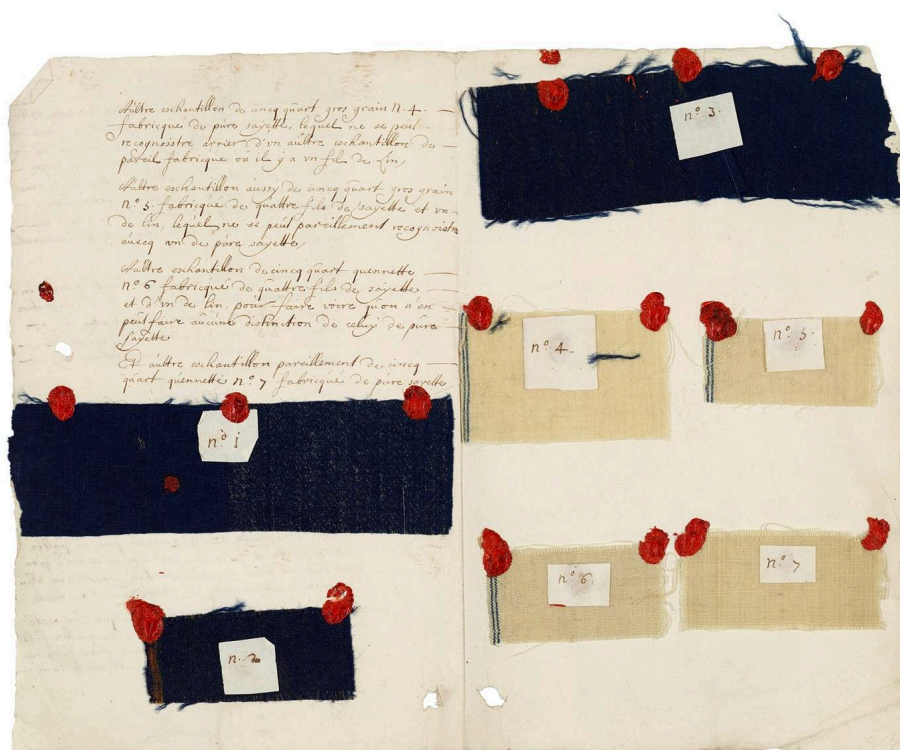 Aultre eschantillon de cincq quart gros grain n. 4.
fabricqué de pure sayette, lequel ne se peut
recognoistre arrier d'vn aultre eschantillon de
pareil fabricque ou il y a vn fil de lin,
Aultre eschantillon aussy de cincq quart gros grain
n° 5. fabricqué de quattre fils de sayette et vn
de lin, lequel ne se peut pareillement recognoistre
auecq vn de pure sayette,
Aultre eschantillon de cincq quart quennette
n° 6 fabricqué de quattre fils de sayette
et d'vn de lin, pour faire voire qu'on n'en
peut faire aucune distinction de celuy de pure
sayette
Et aultre eschantillon pareillement de cincq
quart quennette n° 7 fabricqué de pure sayette
n° 3.
n° 4.
n° 5.
n° 1
n° 6.
n° 7
n. 2